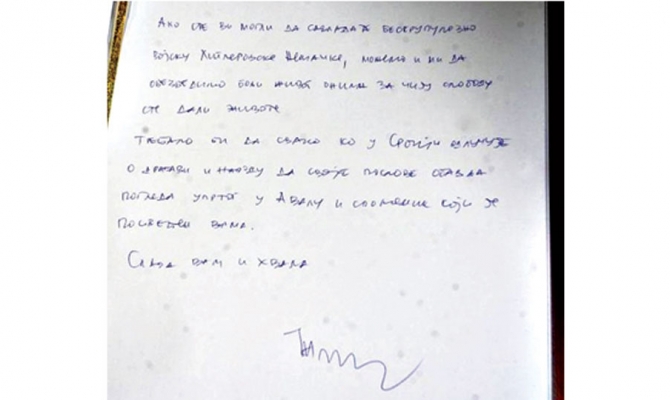 Ако сте ви могли да савладате бескрупулозну
војску Хитлеровске Немачке, можемо и ми да
обезбедимо бољи живот онима за чију слободу
сте дали животе
Требало би да свако ко у Србији одлучује
о држави и народу да своје послове обавља
погледа упртог у Авалу и споменик који је
посвећен вама.
Слава вам и хвала